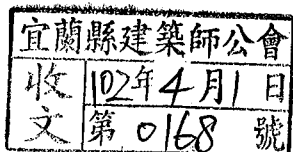 宜蘭縣建築師公會
收文
102年4月1日
第0168號